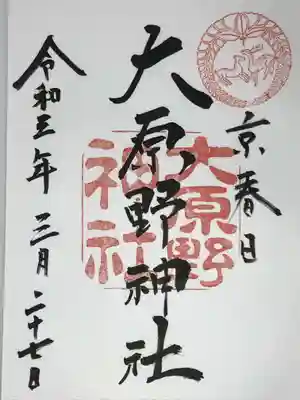 京春日
大原野神社
大原野
神社
令和三年三月二十七日